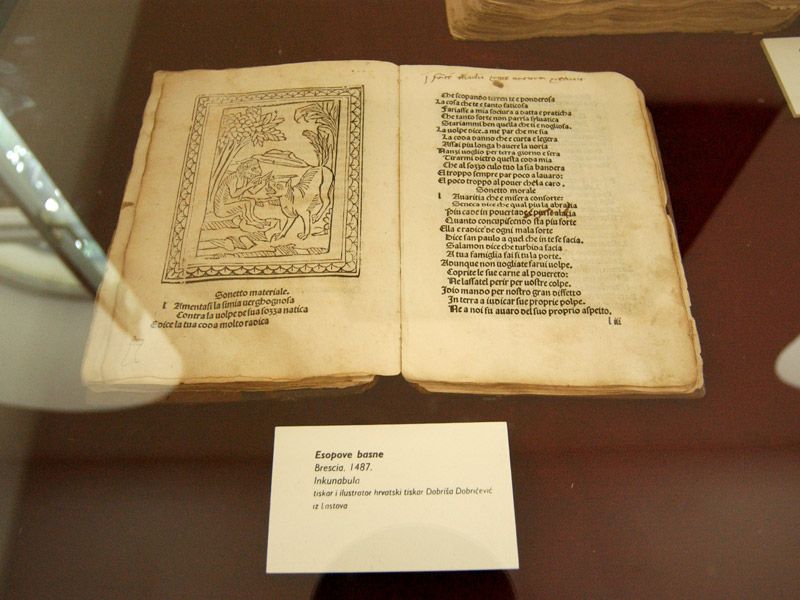 Sonetto materiale.
Amentasi la simia verghognosa
Contra la volpe de sua sozza natica
E dice la tua coda molto radica
Che scopando terren te e ponderosa
La cosa che te e tanto faticosa
Fariasse a mia sociura adatta e praticha
Che tanto forte non parria selvatica
Stariammi ben quella che ti e nogliosa.
La volpe dice. a me par che me sia
La coda danno che e curta e legera
Assai piu longa havere la voria
Nanzi voglio per terra giorno e sera
Tirarmi dietro questa coda mia
Che al sozzo culo tuo la sia bandera
El troppo sempre par poco a lavaro:
El poco troppo al pover chela caro.
Sonetto morale
Avaritia che e misera con forte:
Seneca dice che qual piu la abratia
Piu cade in povertade
Quanto concupiscendo sta piu forte
Ella e radice de ogni mala sorte
Dice san paulo a quel che in te se sacia.
Salamon dice che turbida facia
A tua famiglia fai si tu la porte.
Adunque non vogliate farui volpe.
Coprite le sue carne al povereto:
Ne lassatel perir per vostre colpe.
Idio mando per nostro gran diffetto
In terra a iudicar sue proprie polpe.
Ne a noi fu avaro del suo proprio aspetto.
Esopove basne
Brescia, 1487.
Inkunabula
tiskar i ilustrator hrvatski tiskar Dobriša Dobričević
iz Lastova